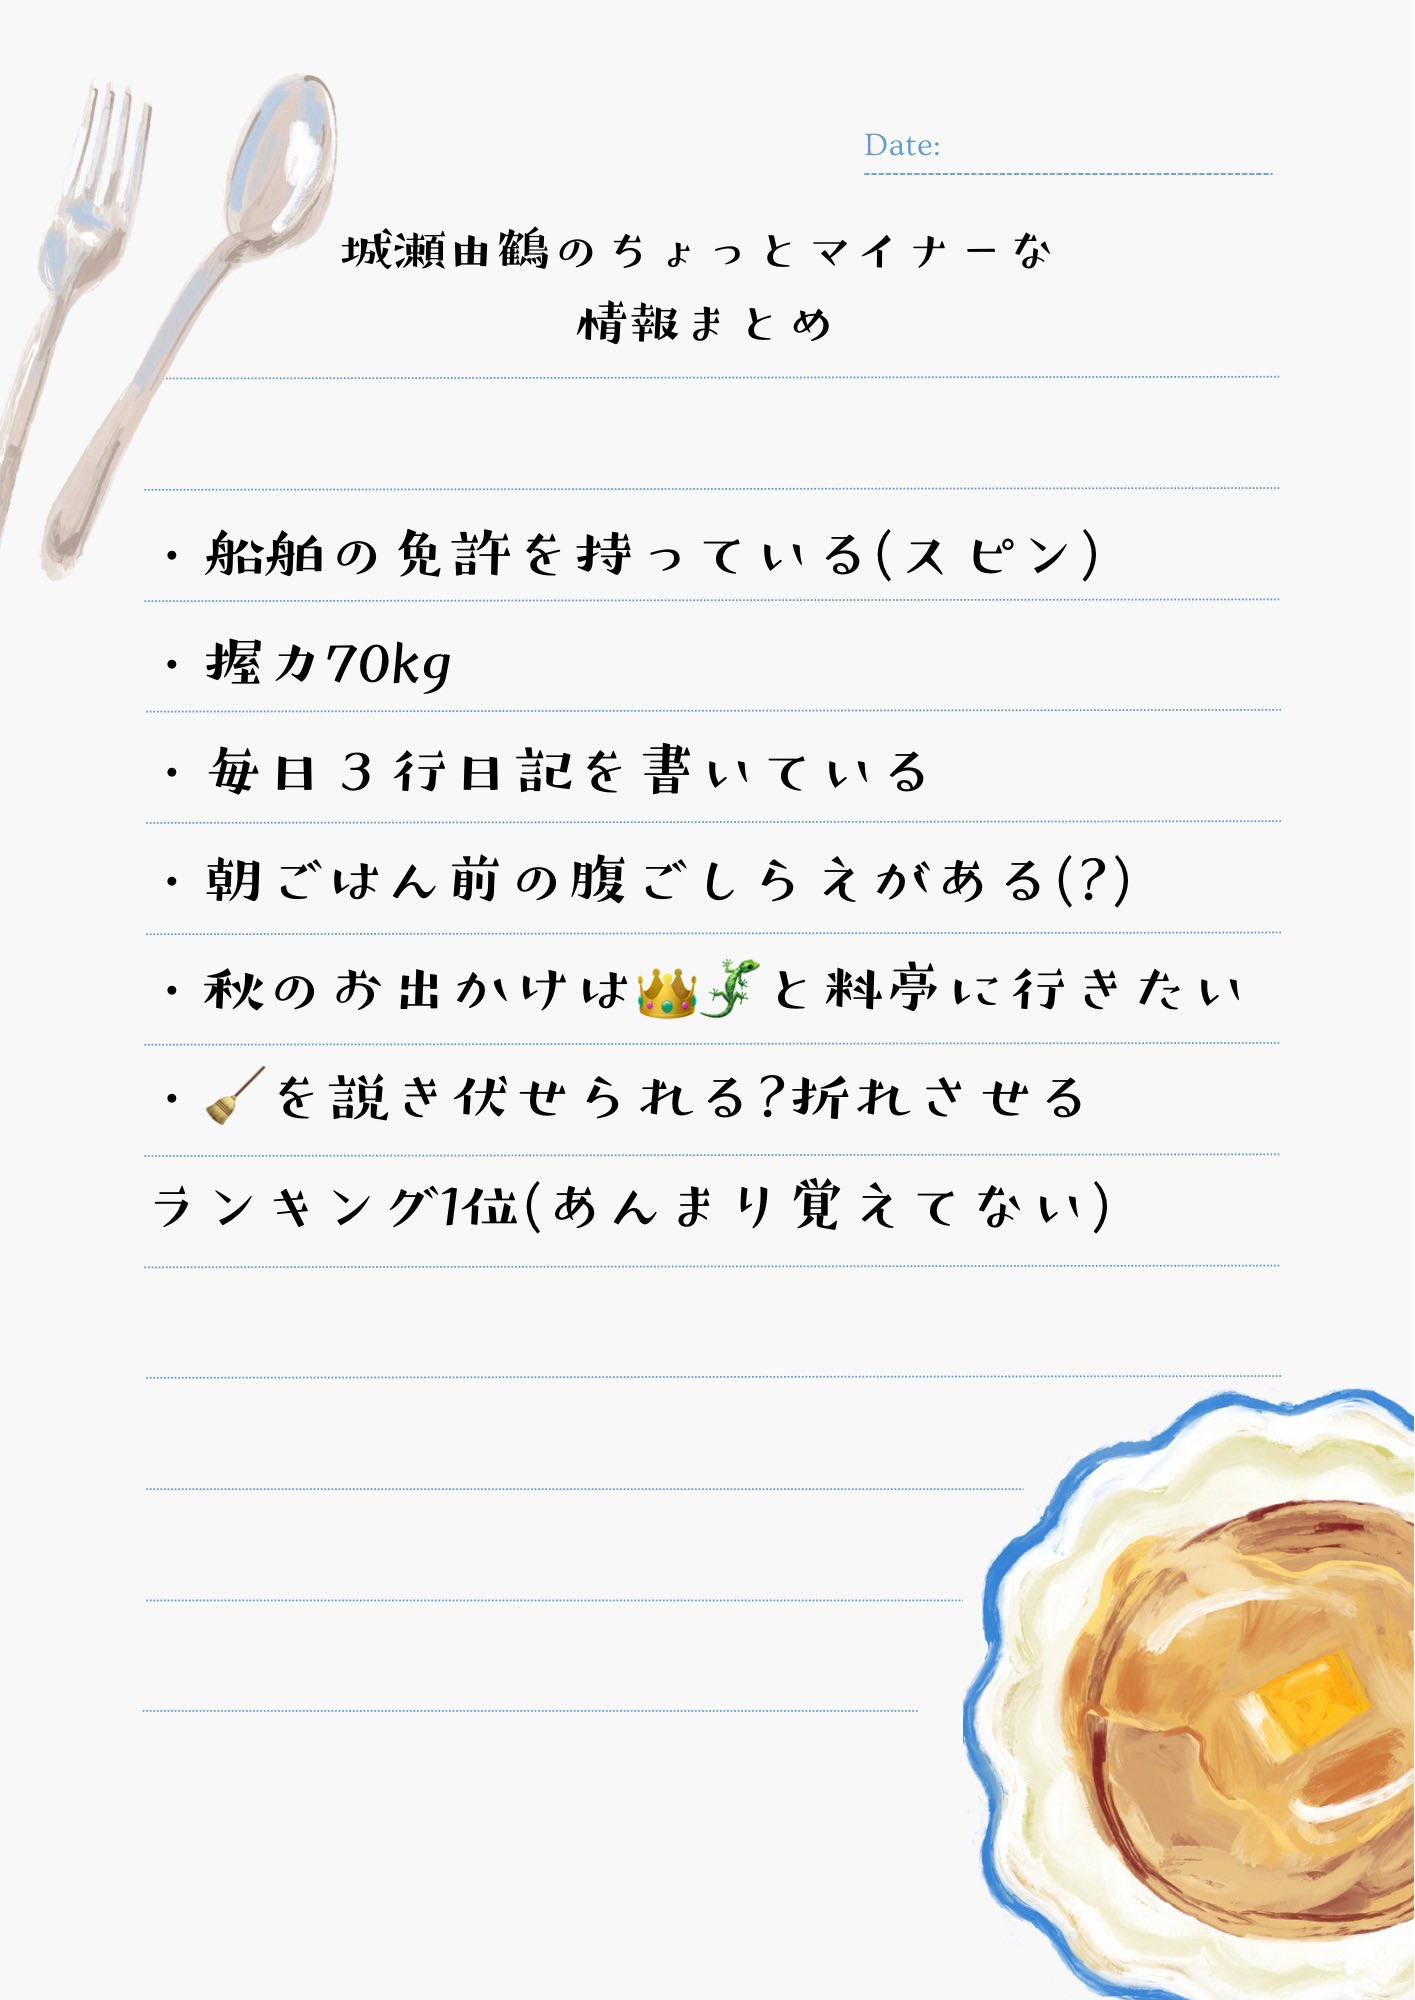 Date:
城瀬由鶴のちょっとマイナーな
情報まとめ
・船舶の免許を持っている(スピン)
・握力70kg
・毎日３行日記を書いている
・朝ごはん前の腹ごしらえがある(?)
・秋のお出かけは👑🦎と料亭に行きたい
・🧹を説き伏せられる?折れさせる
ランキング1位(あんまり覚えてない)